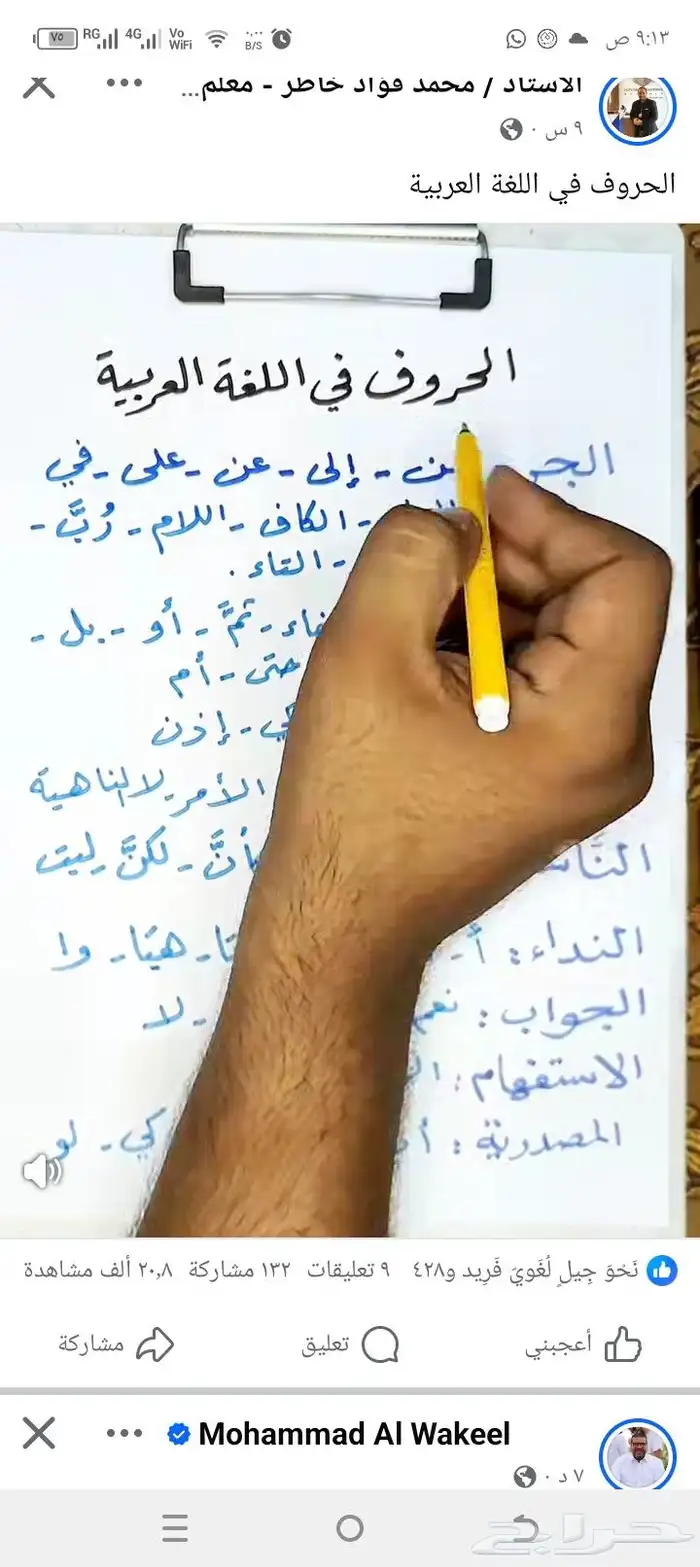 ٩:١٣ ص
Vo WiFi 4G RG ٧٥
B/S
الأستاذ / محمد فؤاد خاطر - معلم...
٩ س ·
الحروف في اللغة العربية
الحروف في اللغة العربية
الجر - إلى - عن - على - في
- الكاف - اللام - رُبَّ -
- التاء .
ثمَّ - أو - بل -
حتى - أم
كي - إذن
الأمر - لا الناهية
أنَّ - لكنَّ - ليت
النداء : أ - هيا - وا
الجواب : نعم - لا
الاستفهام :
المصدرية : كي - لو
نَحْوَ جِيلٍ لُغَويّ فَرِيد و٤٢٨ ٩ تعليقات ١٣٢ مشاركة ٢٠,٨ ألف مشاهدة
أعجبني تعليق مشاركة
Mohammad Al Wakeel
٧ د ·
حراج